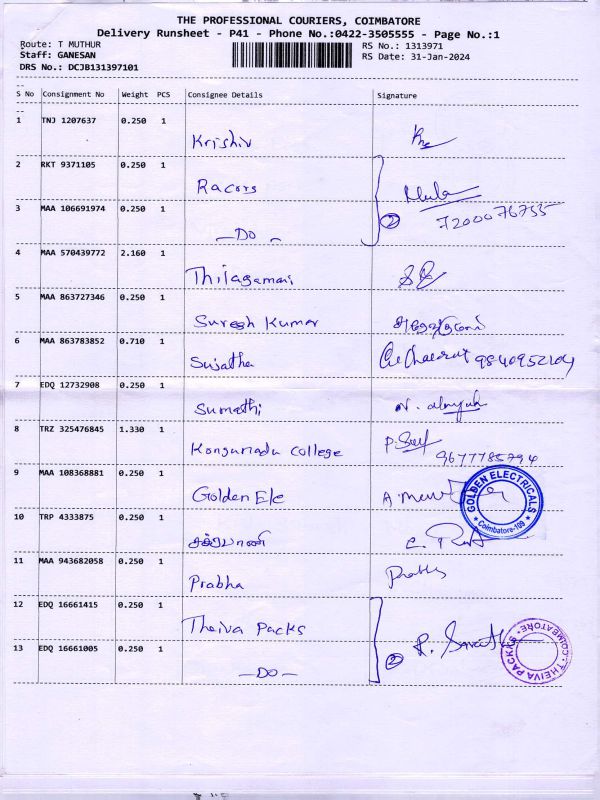 THE PROFESSIONAL COURIERS, COIMBATORE
Delivery Runsheet - P41 - Phone No.:0422-3505555 - Page No.:1
Route: T MUTHUR
Staff: GANESAN
DRS No.: DCJB131397101
RS No.: 1313971
RS Date: 31-Jan-2024
S No Consignment No Weight PCS Consignee Details Signature
1 TNJ 1207637 0.250 1
Krishiv
2 RKT 9371105 0.250 1
Racors
3 MAA 106691974 0.250 1
2 7200076755
-DO-
4 MAA 570439772 2.160 1
Thilagamani
5 MAA 863727346 0.250 1
Suresh Kumar
6 MAA 863783852 0.710 1
Sujatha 9840952104
7 EDQ 12732908 0.250 1
Sumathi
8 TRZ 325476845 1.330 1
Kongunadu College
9677785794
9 MAA 108368881 0.250 1
Golden Ele
GOLDEN ELECTRICALS
* Coimbatore-109 *
10 TRP 4333875 0.250 1
சக்ரபாணி
11 MAA 943682058 0.250 1
Prabha Prabha
12 EDQ 16661415 0.250 1
Theiva Packs
13 EDQ 16661005 0.250 1
2
THEIVA PACKKS * COIMBATORE.
-DO-